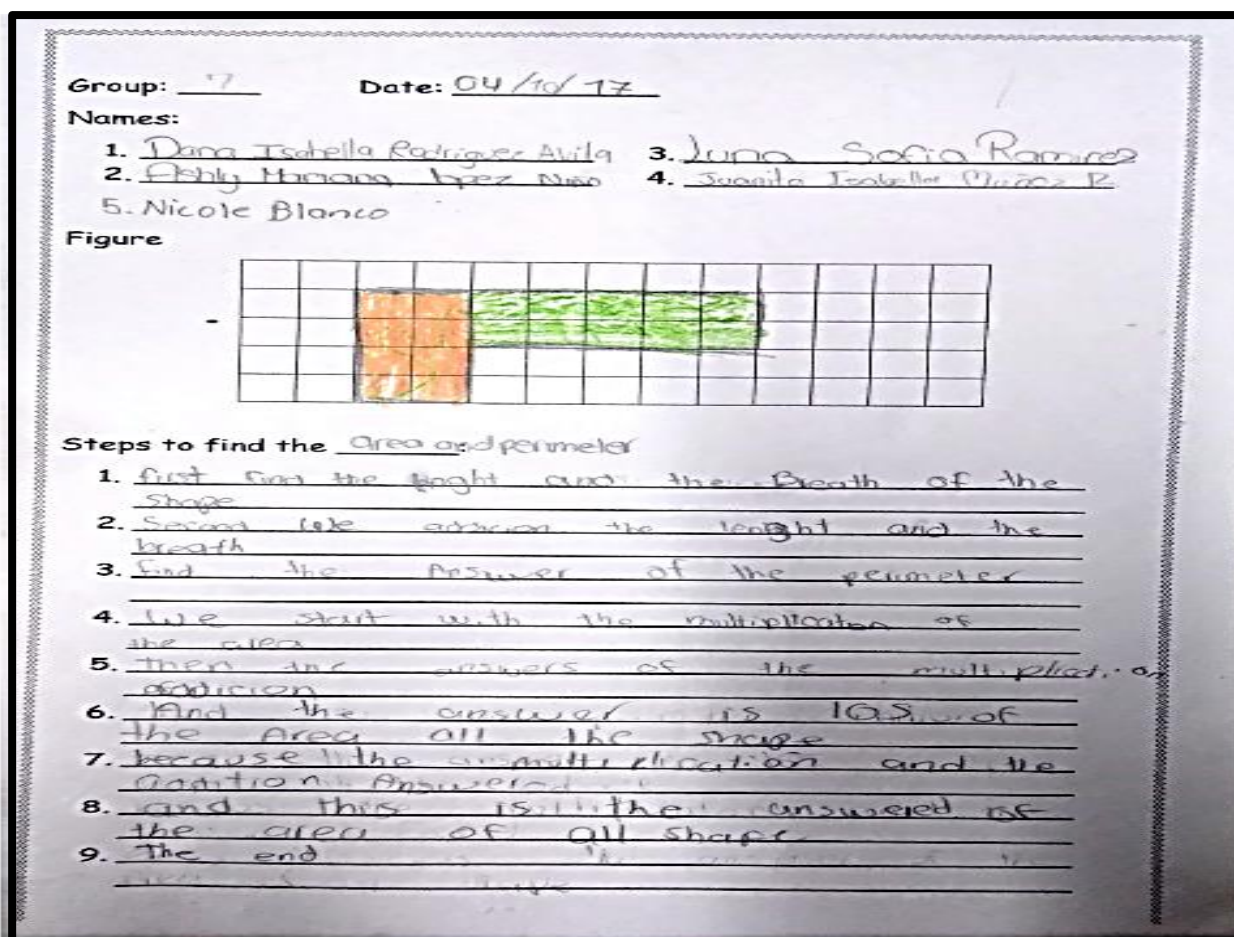 Group: 7 Date: 04/10/17
Names:
1. Dana Isabella Rodriguez Avila 3. Luna Sofia Ramirez
2. Ashly Mariana lopez Niño 4. Juanita Isabella Muñoz R
5. Nicole Blanco
Figure
Steps to find the area and perimeter
1. first find the and the Breath of the
shape
2. Second we adicion the lenght and the
breath
3. find the Answer of the perimeter
4. We start with the multiplication of
the area
5. then the answers of the multiplication
addicion
6. And the answer is of
the Area all the shape
7. because the multiplication and the
addition Answered
8. and this is the answered of
the area of all shape
9. The end